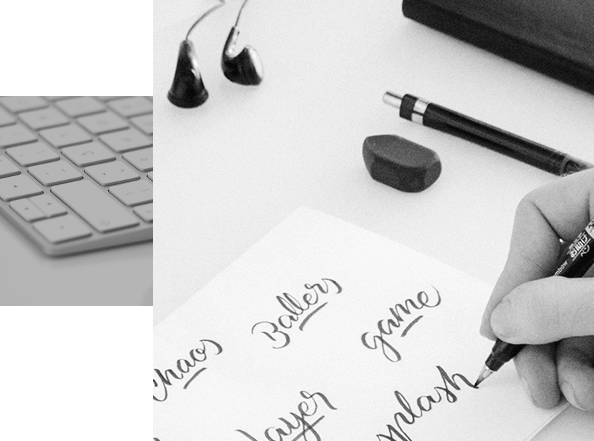 chaos Ballers game
layer splash